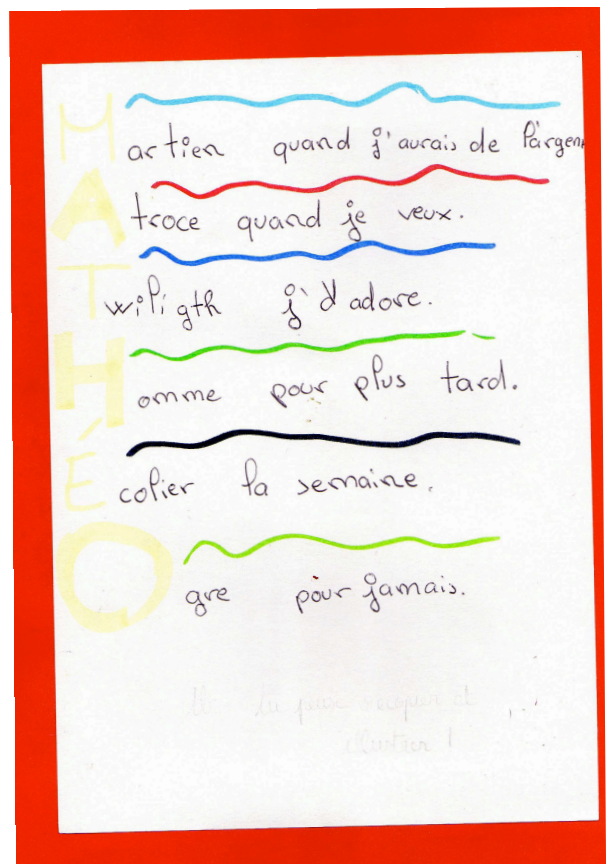 Martien quand j'aurais de l'argent
Atroce quand je veux.
Twiligth j'd'adore.
Homme pour plus tard.
Écolier la semaine.
Ogre pour jamais.
tu peux recopier et
illustrer !